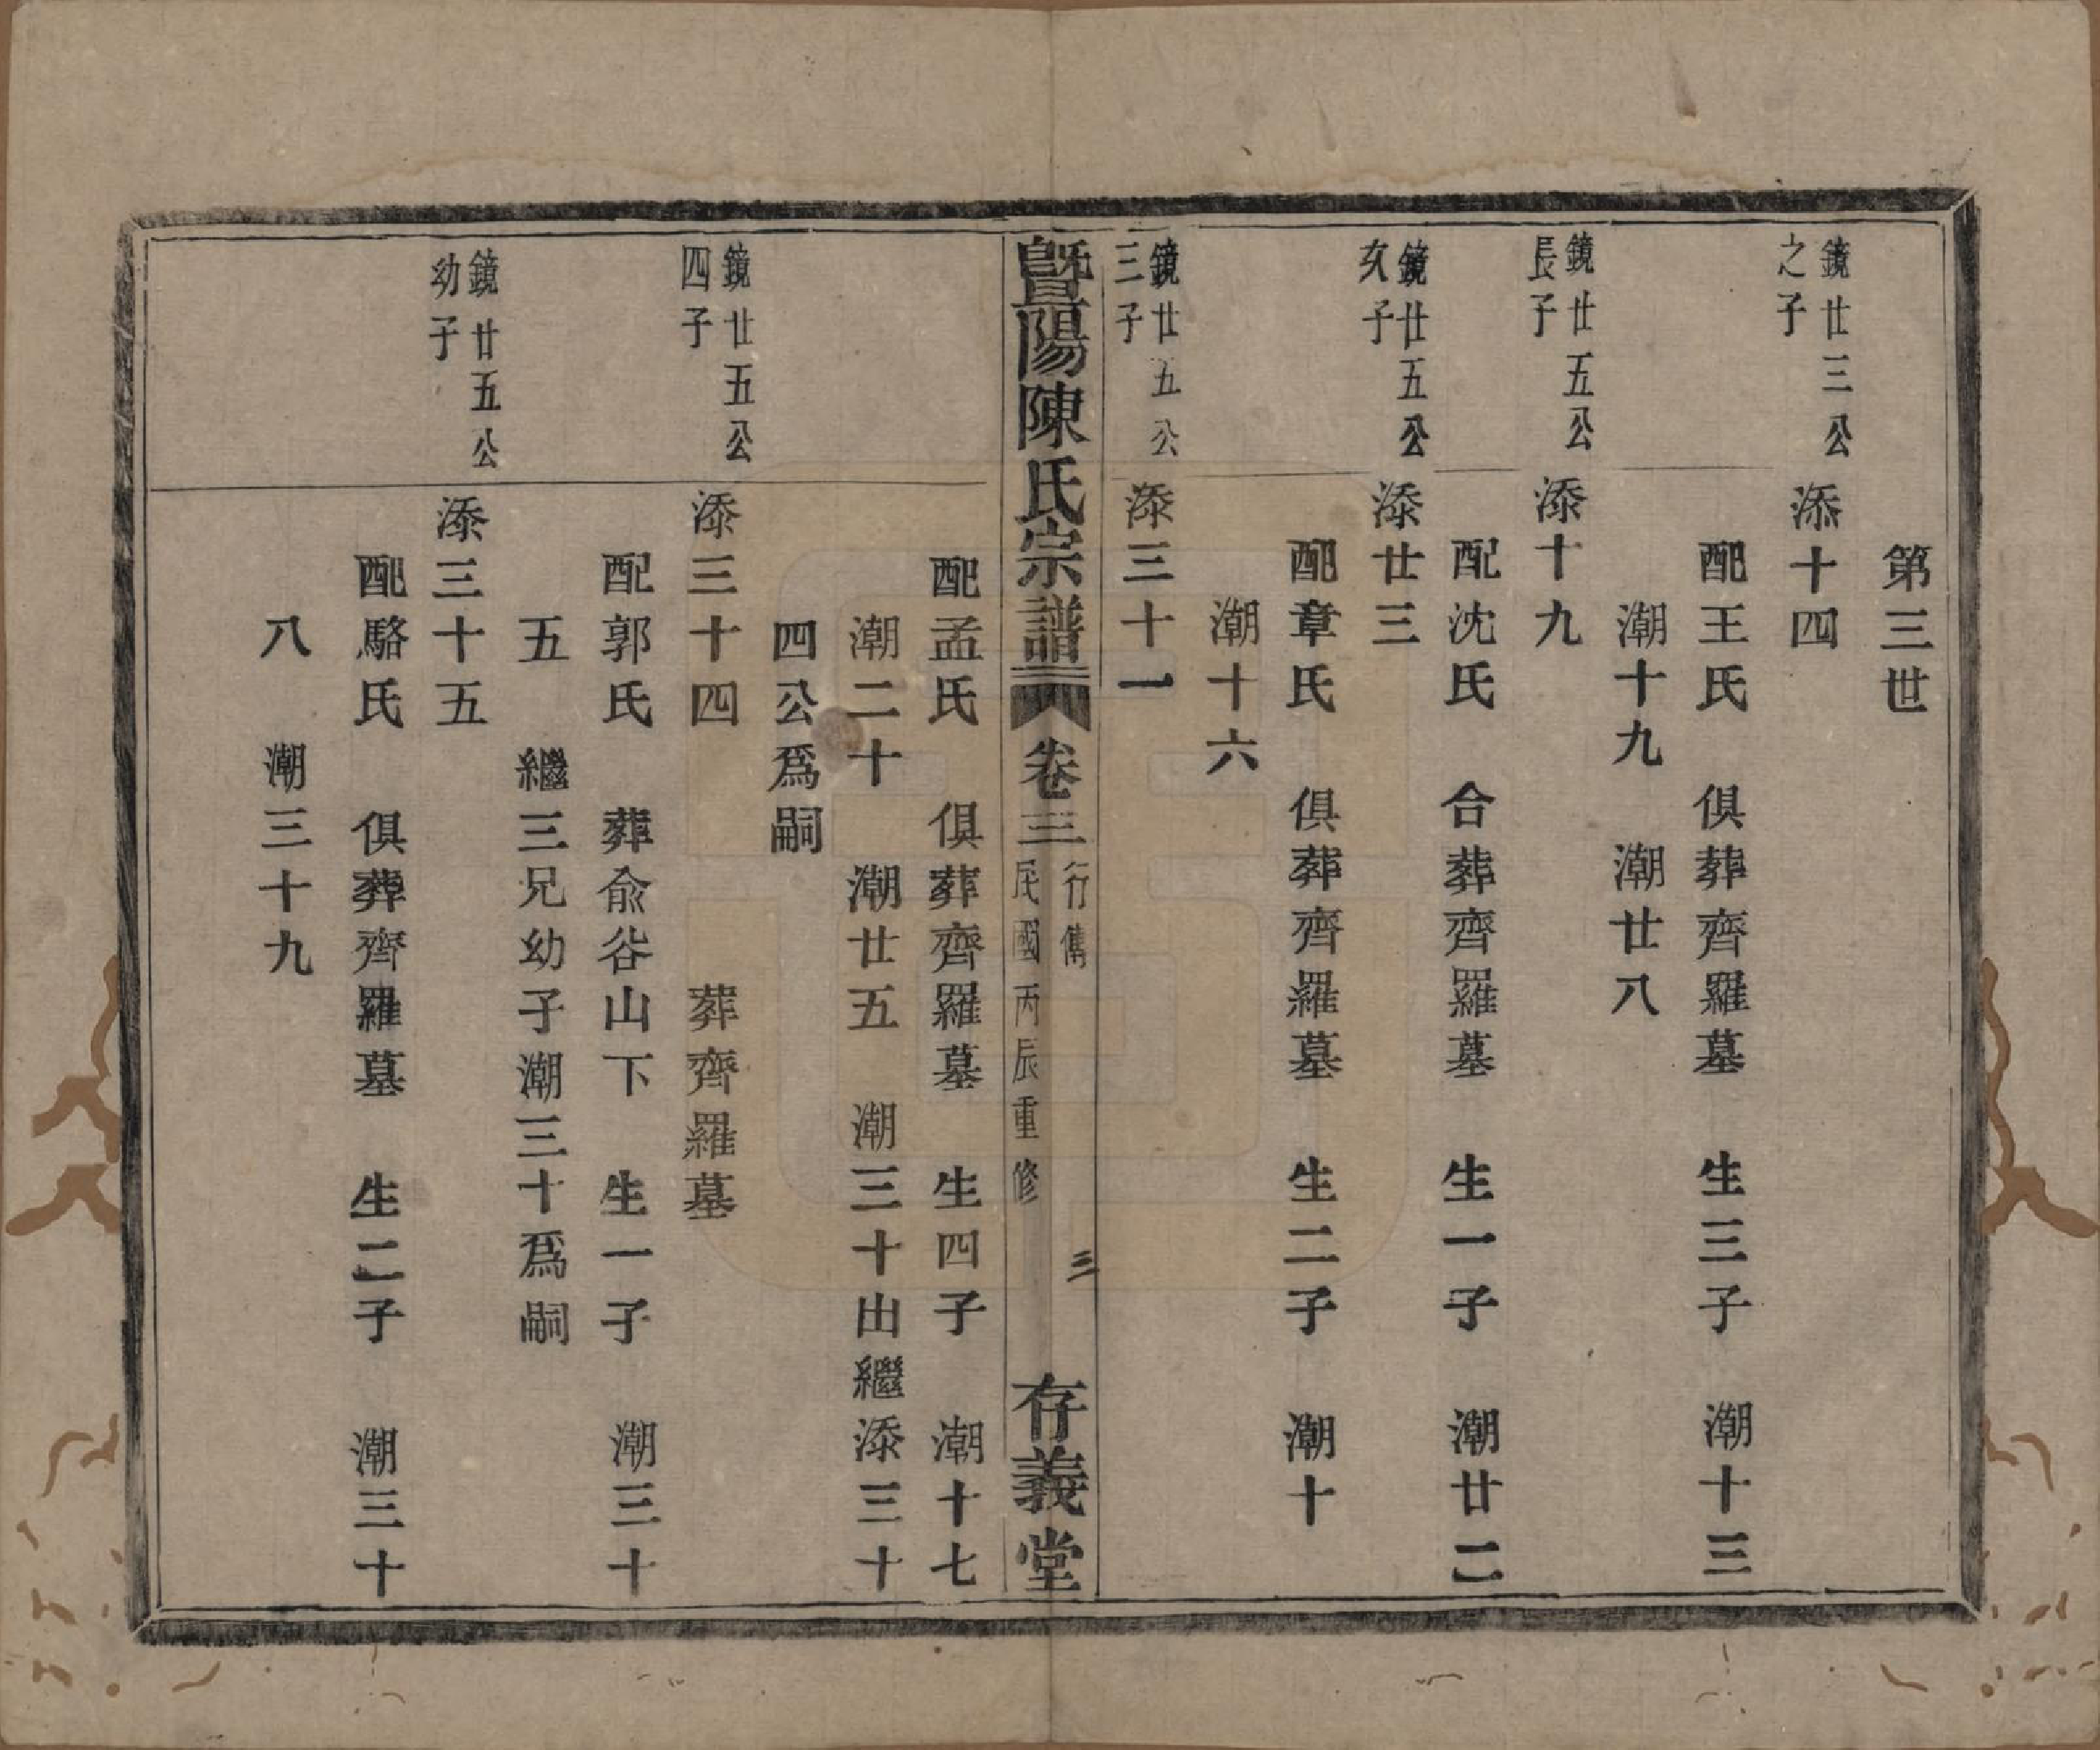 第三世
鏡廿三公
之子
添十四
配王氏　俱葬齊羅墓　生三子　潮十三
潮十九　潮廿八
鏡廿五公
長子
添十九
配沈氏　合葬齊羅墓　生一子　潮廿二
鏡廿五公
次子
添廿三
配章氏　俱葬齊羅墓　生二子　潮十
潮十六
鏡廿五公
三子
添三十一
暨陽陳氏宗譜　卷三　行傳　民國丙辰重修　三　存義堂
配孟氏　俱葬齊羅墓　生四子　潮十七
潮二十　潮廿五　潮三十出繼添三十
四公爲嗣
鏡廿五公
四子
添三十四　葬齊羅墓
配郭氏　葬俞谷山下　生一子　潮三十
五　繼三兄幼子潮三十爲嗣
鏡廿五公
幼子
添三十五
配駱氏　俱葬齊羅墓　生二子　潮三十
八　潮三十九